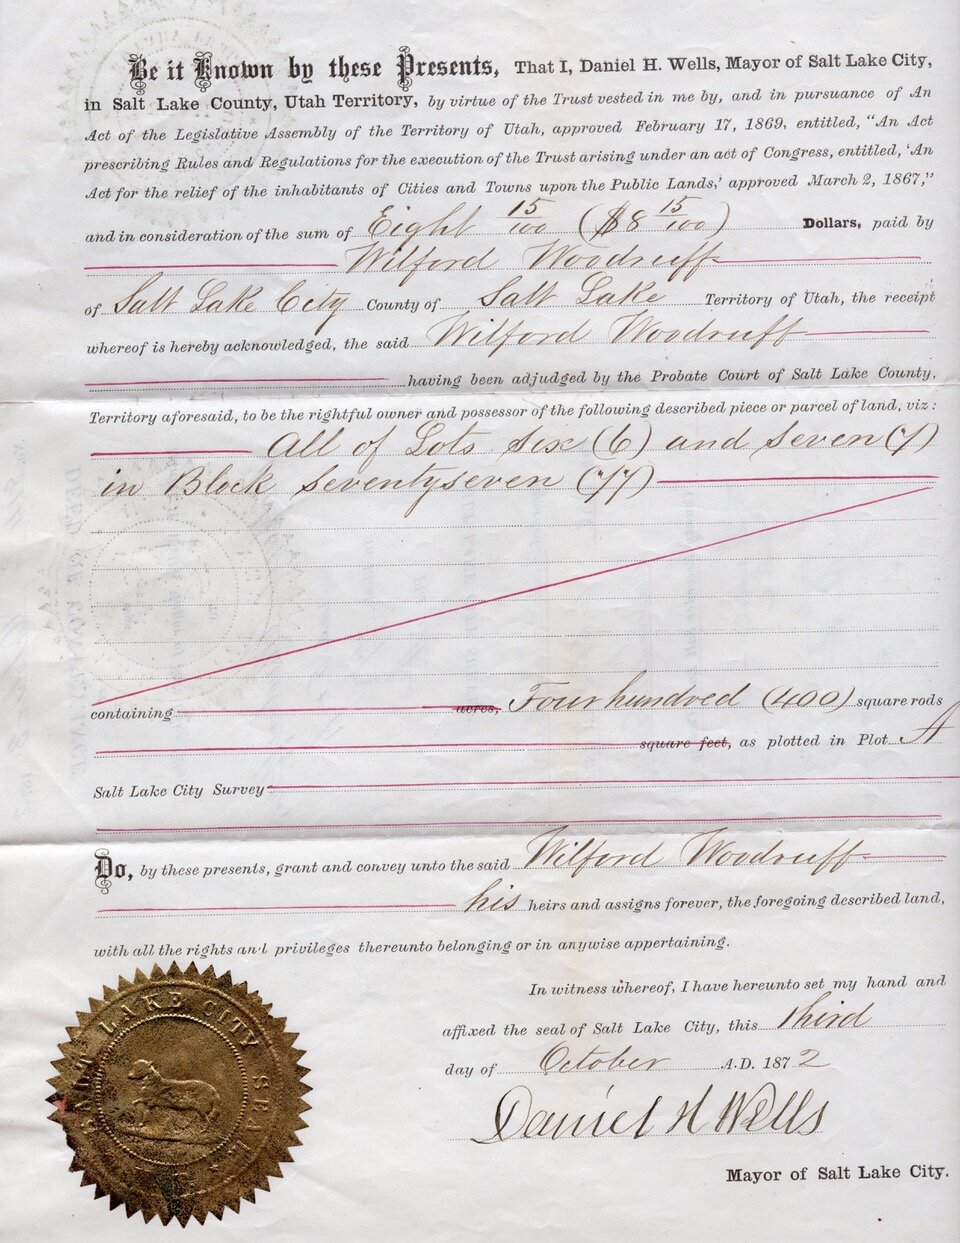 Be it Known by these Presents, That I, Daniel H. Wells, Mayor of Salt Lake City,
in Salt Lake County, Utah Territory, by virtue of the Trust vested in me by, and in pursuance of An
Act of the Legislative Assembly of the Territory of Utah, approved February 17, 1869, entitled, "An Act
prescribing Rules and Regulations for the execution of the Trust arising under an act of Congress, entitled, 'An
Act for the relief of the inhabitants of Cities and Towns upon the Public Lands,' approved March 2, 1867,"
and in consideration of the sum of Eight 15/100 ($8 15/100) Dollars, paid by
Wilford Woodruff
of Salt Lake City County of Salt Lake Territory of Utah, the receipt
whereof is hereby acknowledged, the said Wilford Woodruff
having been adjudged by the Probate Court of Salt Lake County,
Territory aforesaid, to be the rightful owner and possessor of the following described piece or parcel of land, viz:
All of Lots six (6) and seven (7)
in Block seventyseven (77)
containing acres, Four hundred (400) square rods
square feet, as plotted in Plot A
Salt Lake City Survey
Do, by these presents, grant and convey unto the said Wilford Woodruff
his heirs and assigns forever, the foregoing described land,
with all the rights and privileges thereunto belonging or in anywise appertaining.
In witness whereof, I have hereunto set my hand and
affixed the seal of Salt Lake City, this third
day of October A.D. 1872
Daniel H Wells
Mayor of Salt Lake City.
SALT LAKE CITY SEAL